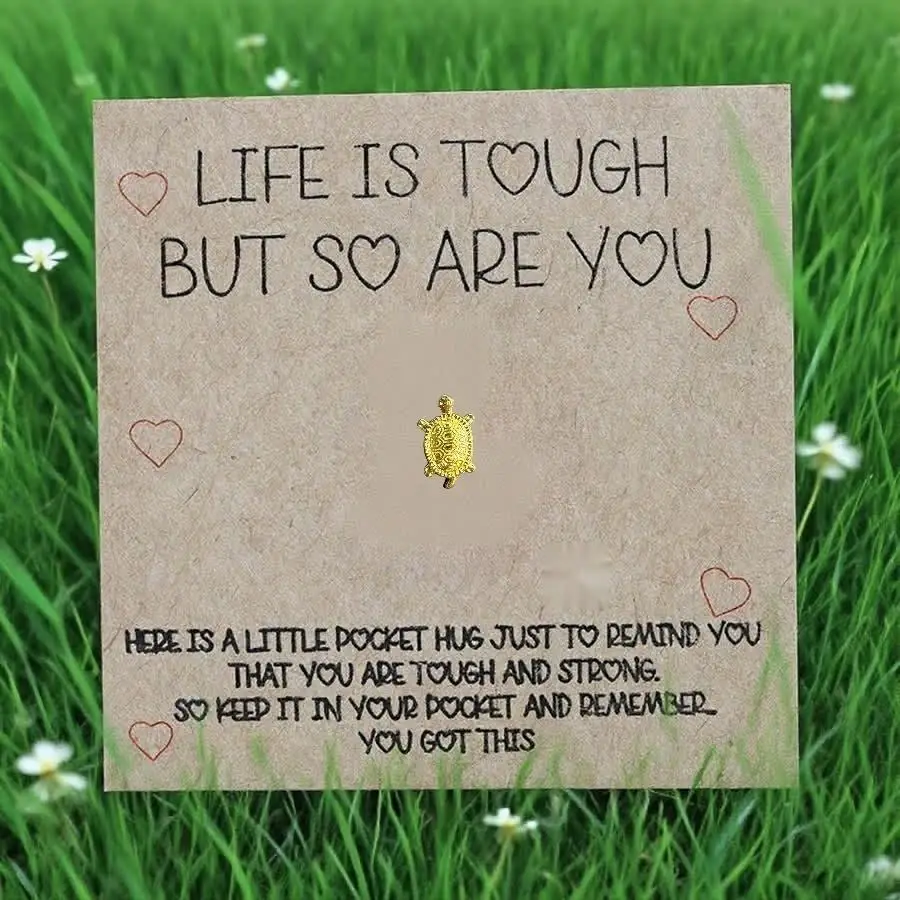 LIFE IS TOUGH
BUT SO ARE YOU
HERE IS A LITTLE POCKET HUG JUST TO REMIND YOU
THAT YOU ARE TOUGH AND STRONG.
SO KEEP IT IN YOUR POCKET AND REMEMBER...
YOU GOT THIS